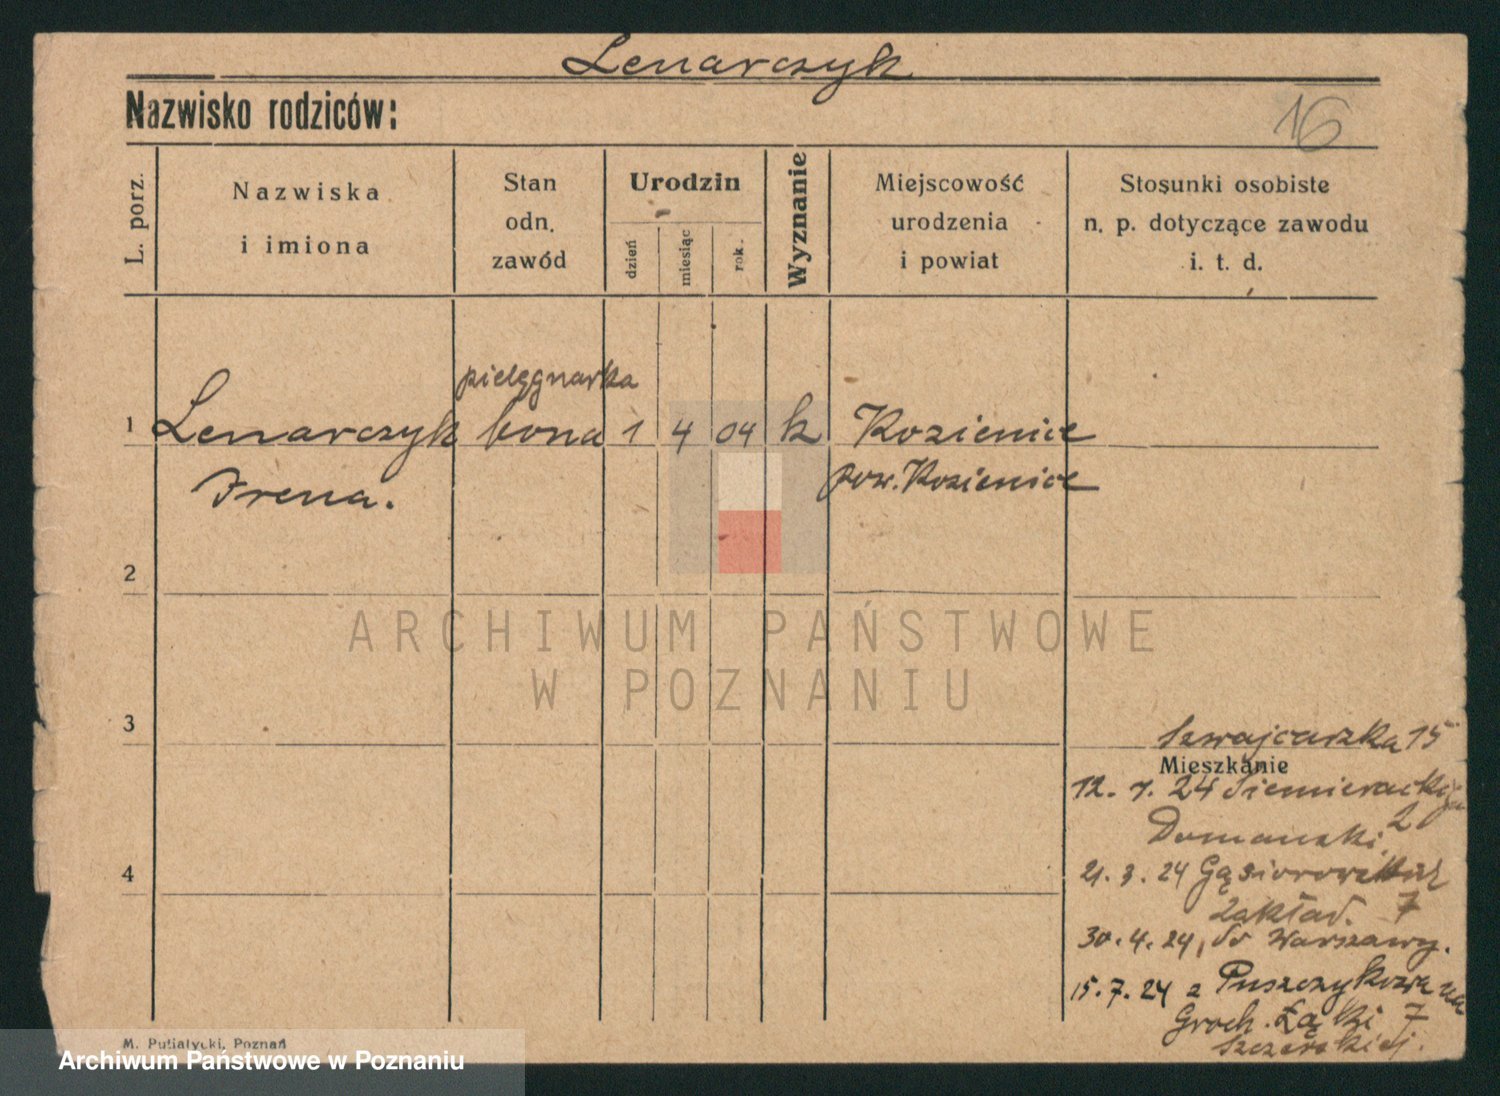 Lenarczyk
Nazwisko rodziców:
16
L. porz.
Nazwiska
i imiona
Stan
odn.
zawód
Urodzin
dzień
miesiąc
rok.
Wyznanie
Miejscowość
urodzenia
i powiat
Stosunki osobiste
n. p. dotyczące zawodu
i. t. d.
pielęgnarka
1 Lenarczyk bona 1 4 04 k Kozienice
Irena. pow. Kozienice
2
ARCHIWUM PAŃSTWOWE
W POZNANIU
3
Szwajcarska 15
Mieszkanie
12. 1. 24 Siemieradzkiego
2
Domański.
4
21. 3. 24 Gąsiorowskich
Zakład. 7
30. 4. 24, do Warszawy.
15. 7. 24 z Puszczykowa na
Groch. Łąki 7
M. Putiatycki, Poznań
Archiwum Państwowe w Poznaniu